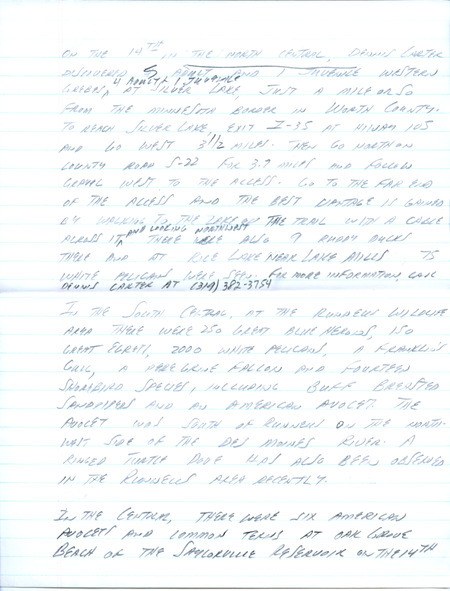 ON THE 14TH IN THE NORTH CENTRAL, DENNIS CARTER
DISCOVERED 5 ADULT AND 1 JUVENILE WESTERN
4 ADULTS 1 JUVENILE
GREBES, AT SILVER LAKE, JUST A MILE OR SO
FROM THE MINNESOTA BORDER IN WORTH COUNTY.
TO REACH SILVER LAKE, EXIT I-35 AT HIWAY 105
AND GO WEST 3 1/2 MILES. THEN GO NORTH ON
COUNTY ROAD S-22 FOR 3.7 MILES AND FOLLOW
GRAVEL WEST TO THE ACCESS. GO TO THE FAR END
OF THE ACCESS AND THE BEST VANTAGE IS GAINED
BY WALKING TO THE LAKE ON THE TRAIL WITH A CABLE
AND LOOKING NORTHWEST
ACROSS IT. THERE WERE ALSO 9 RUDDY DUCKS
THERE AND AT RICE LAKE NEAR LAKE MILLS 75
WHITE PELICANS WERE SEEN. FOR MORE INFORMATION, CALL
DENNIS CARTER AT (319) 382-3754
IN THE SOUTH CENTRAL, AT THE RUNNELLS WILDLIFE
AREA THERE WERE 250 GREAT BLUE HERONS, 150
GREAT EGRETS, 2000 WHITE PELICANS, A FRANKLIN'S
GULL, A PEREGRINE FALCON AND FOURTEEN
SHOREBIRD SPECIES, INCLUDING BUFF BREASTED
SANDPIPERS AND AN AMERICAN AVOCET. THE
AVOCET WAS SOUTH OF RUNNELLS ON THE NORTH-
WEST SIDE OF THE DES MOINES RIVER. A
RINGED TURTLE DOVE HAS ALSO BEEN OBSERVED
IN THE RUNNELLS AREA RECENTLY.
IN THE CENTRAL, THERE WERE SIX AMERICAN
AVOCETS AND COMMON TERNS AT OAK GROVE
BEACH OF THE SAYLORVILLE RESERVOIR ON THE 14TH